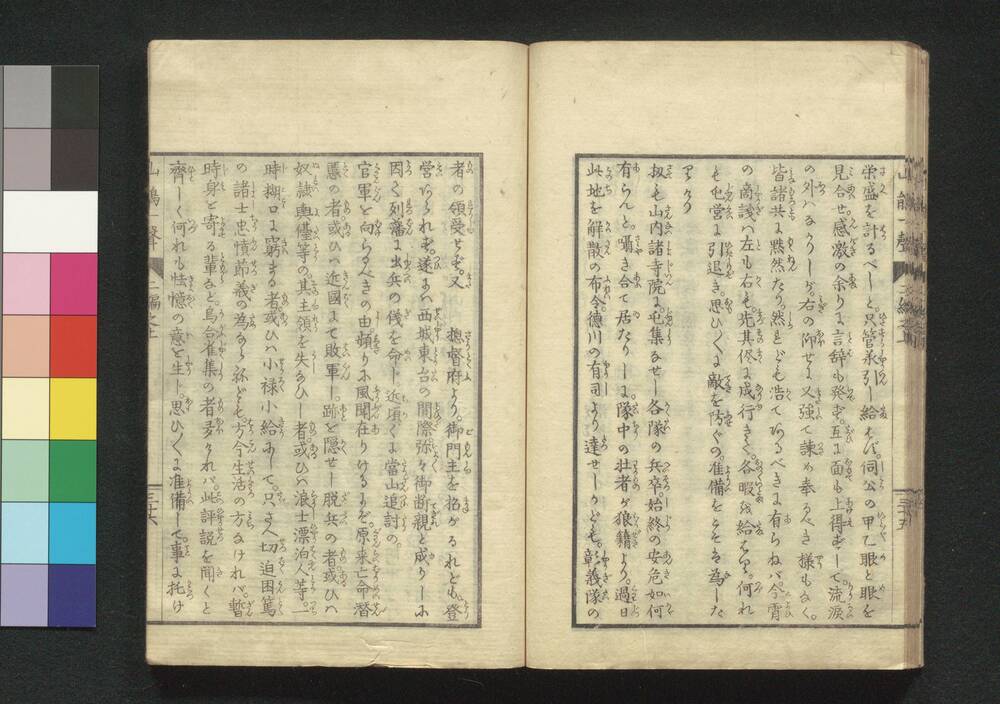 栄盛を計るべしと。只管承引し給はねば。伺公の甲乙眼と眼を
見合せ。感激の余りに言辞も発せず。互に面も上得ずして。流涙
の外ハなかりしが右の仰せに又強て諫め奉るべき様もなく。
皆諸共に黙然たり。然ども浩てあるべきに有らねバ今霄
の商議ハ左も右も。先其侭に成行きて。各暇を給はり。何れ
も屯営に引退き。思ひ〳〵に敵を防ぐの。准備をこそ為した
りけり
扨も山内諸寺院に。屯集なせし各隊の兵卒。始終の安危如何
有らんと。囁き合て居たりしに。隊中の壮者が狼籍より。過日
此地を解散の布令。徳川の有司より達せしかども。彰義隊の
三十五
者の領受せず。又　総督府より御門主を招かるれども。登
営あられず。遂にハ西城東台の間際弥々御断親と成りしに
因く列藩に出兵の儀を命し。近頃くは當山追討の。
官軍を向らるべきの由頻に風聞在りけるにぞ。原来亡命潜
慝の者或ひハ近國にて敗軍し。跡を隠せし脱兵の者。或ひハ
奴誠輿僮等の。其主領を失なひし者。或ひハ浪士漂泊人等。
時糊口に窮する者或ひハ小禄小給にして。只さへ切迫困篤
の諸士忠憤節義の為なら祢ども。方今生活の方なけれバ。暫
時身を寄る輩など。烏合隹集の者多けれバ。此評説を聞くと
齊しく何れも怯憶の意を生ト思ひ〳〵に准備して。事に托け
二編之十
三十六